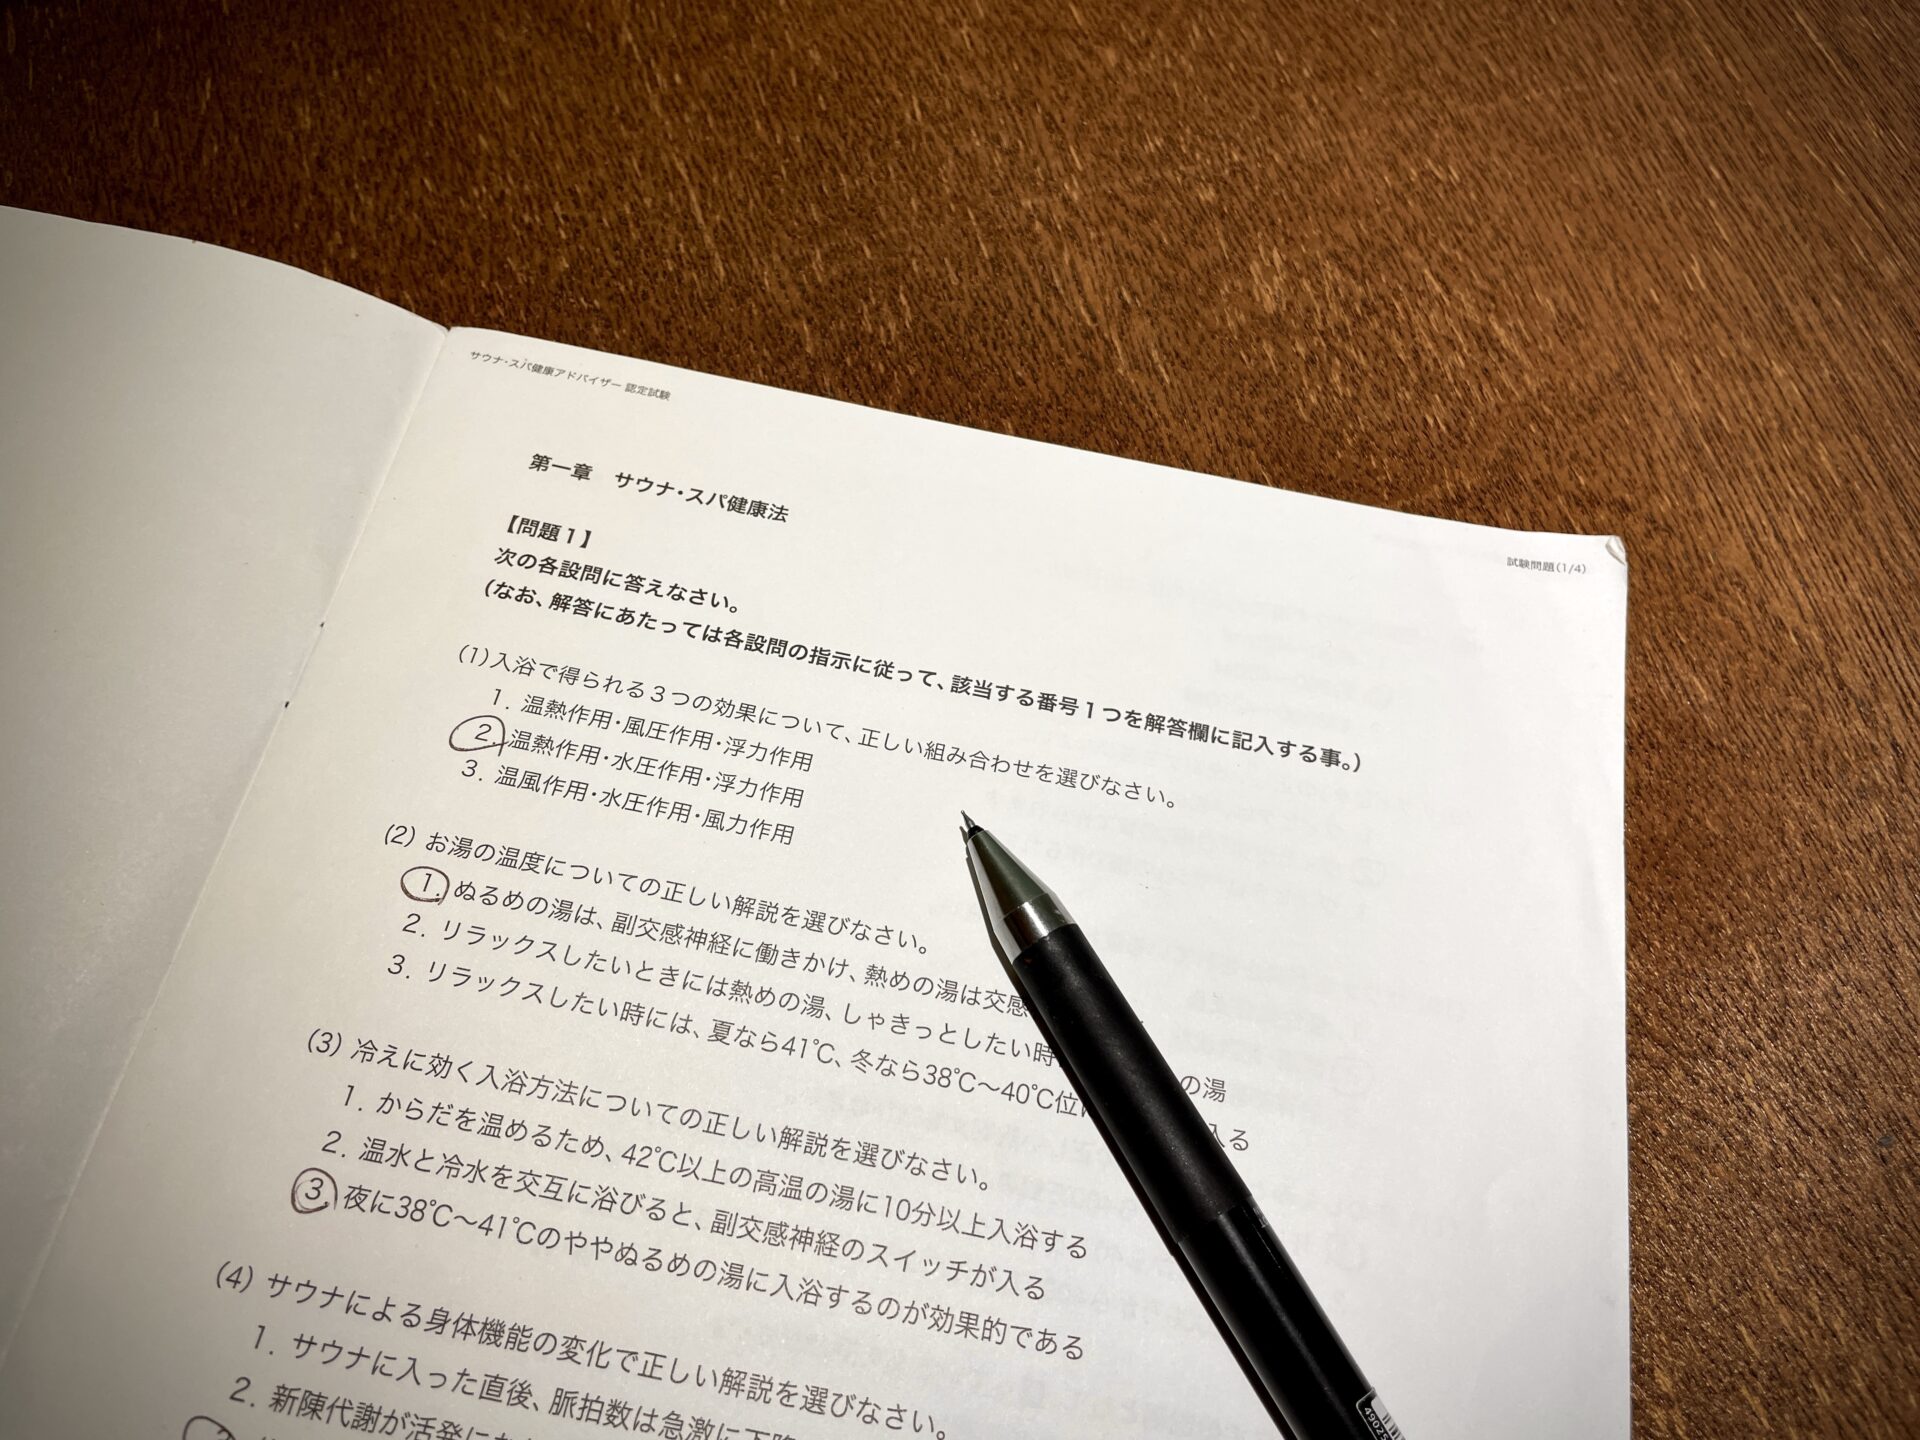 サウナ・スパ健康アドバイザー 認定試験
試験問題(1/4)
第一章 サウナ・スパ健康法
【問題1】
次の各設問に答えなさい。
(なお、解答にあたっては各設問の指示に従って、該当する番号1つを解答欄に記入する事。)
(1)入浴で得られる3つの効果について、正しい組み合わせを選びなさい。
1. 温熱作用・風圧作用・浮力作用
2. 温熱作用・水圧作用・浮力作用
3. 温風作用・水圧作用・風力作用
(2) お湯の温度についての正しい解説を選びなさい。
1. ぬるめの湯は、副交感神経に働きかけ、熱めの湯は交感
2. リラックスしたいときには熱めの湯、しゃきっとしたい時 の湯
3. リラックスしたい時には、夏なら41℃、冬なら38℃〜40℃位 入る
(3) 冷えに効く入浴方法についての正しい解説を選びなさい。
1. からだを温めるため、42℃以上の高温の湯に10分以上入浴する
2. 温水と冷水を交互に浴びると、副交感神経のスイッチが入る
3. 夜に38℃〜41℃のややぬるめの湯に入浴するのが効果的である
(4) サウナによる身体機能の変化で正しい解説を選びなさい。
1. サウナに入った直後、脈拍数は急激に下降
2. 新陳代謝が活発に
49025